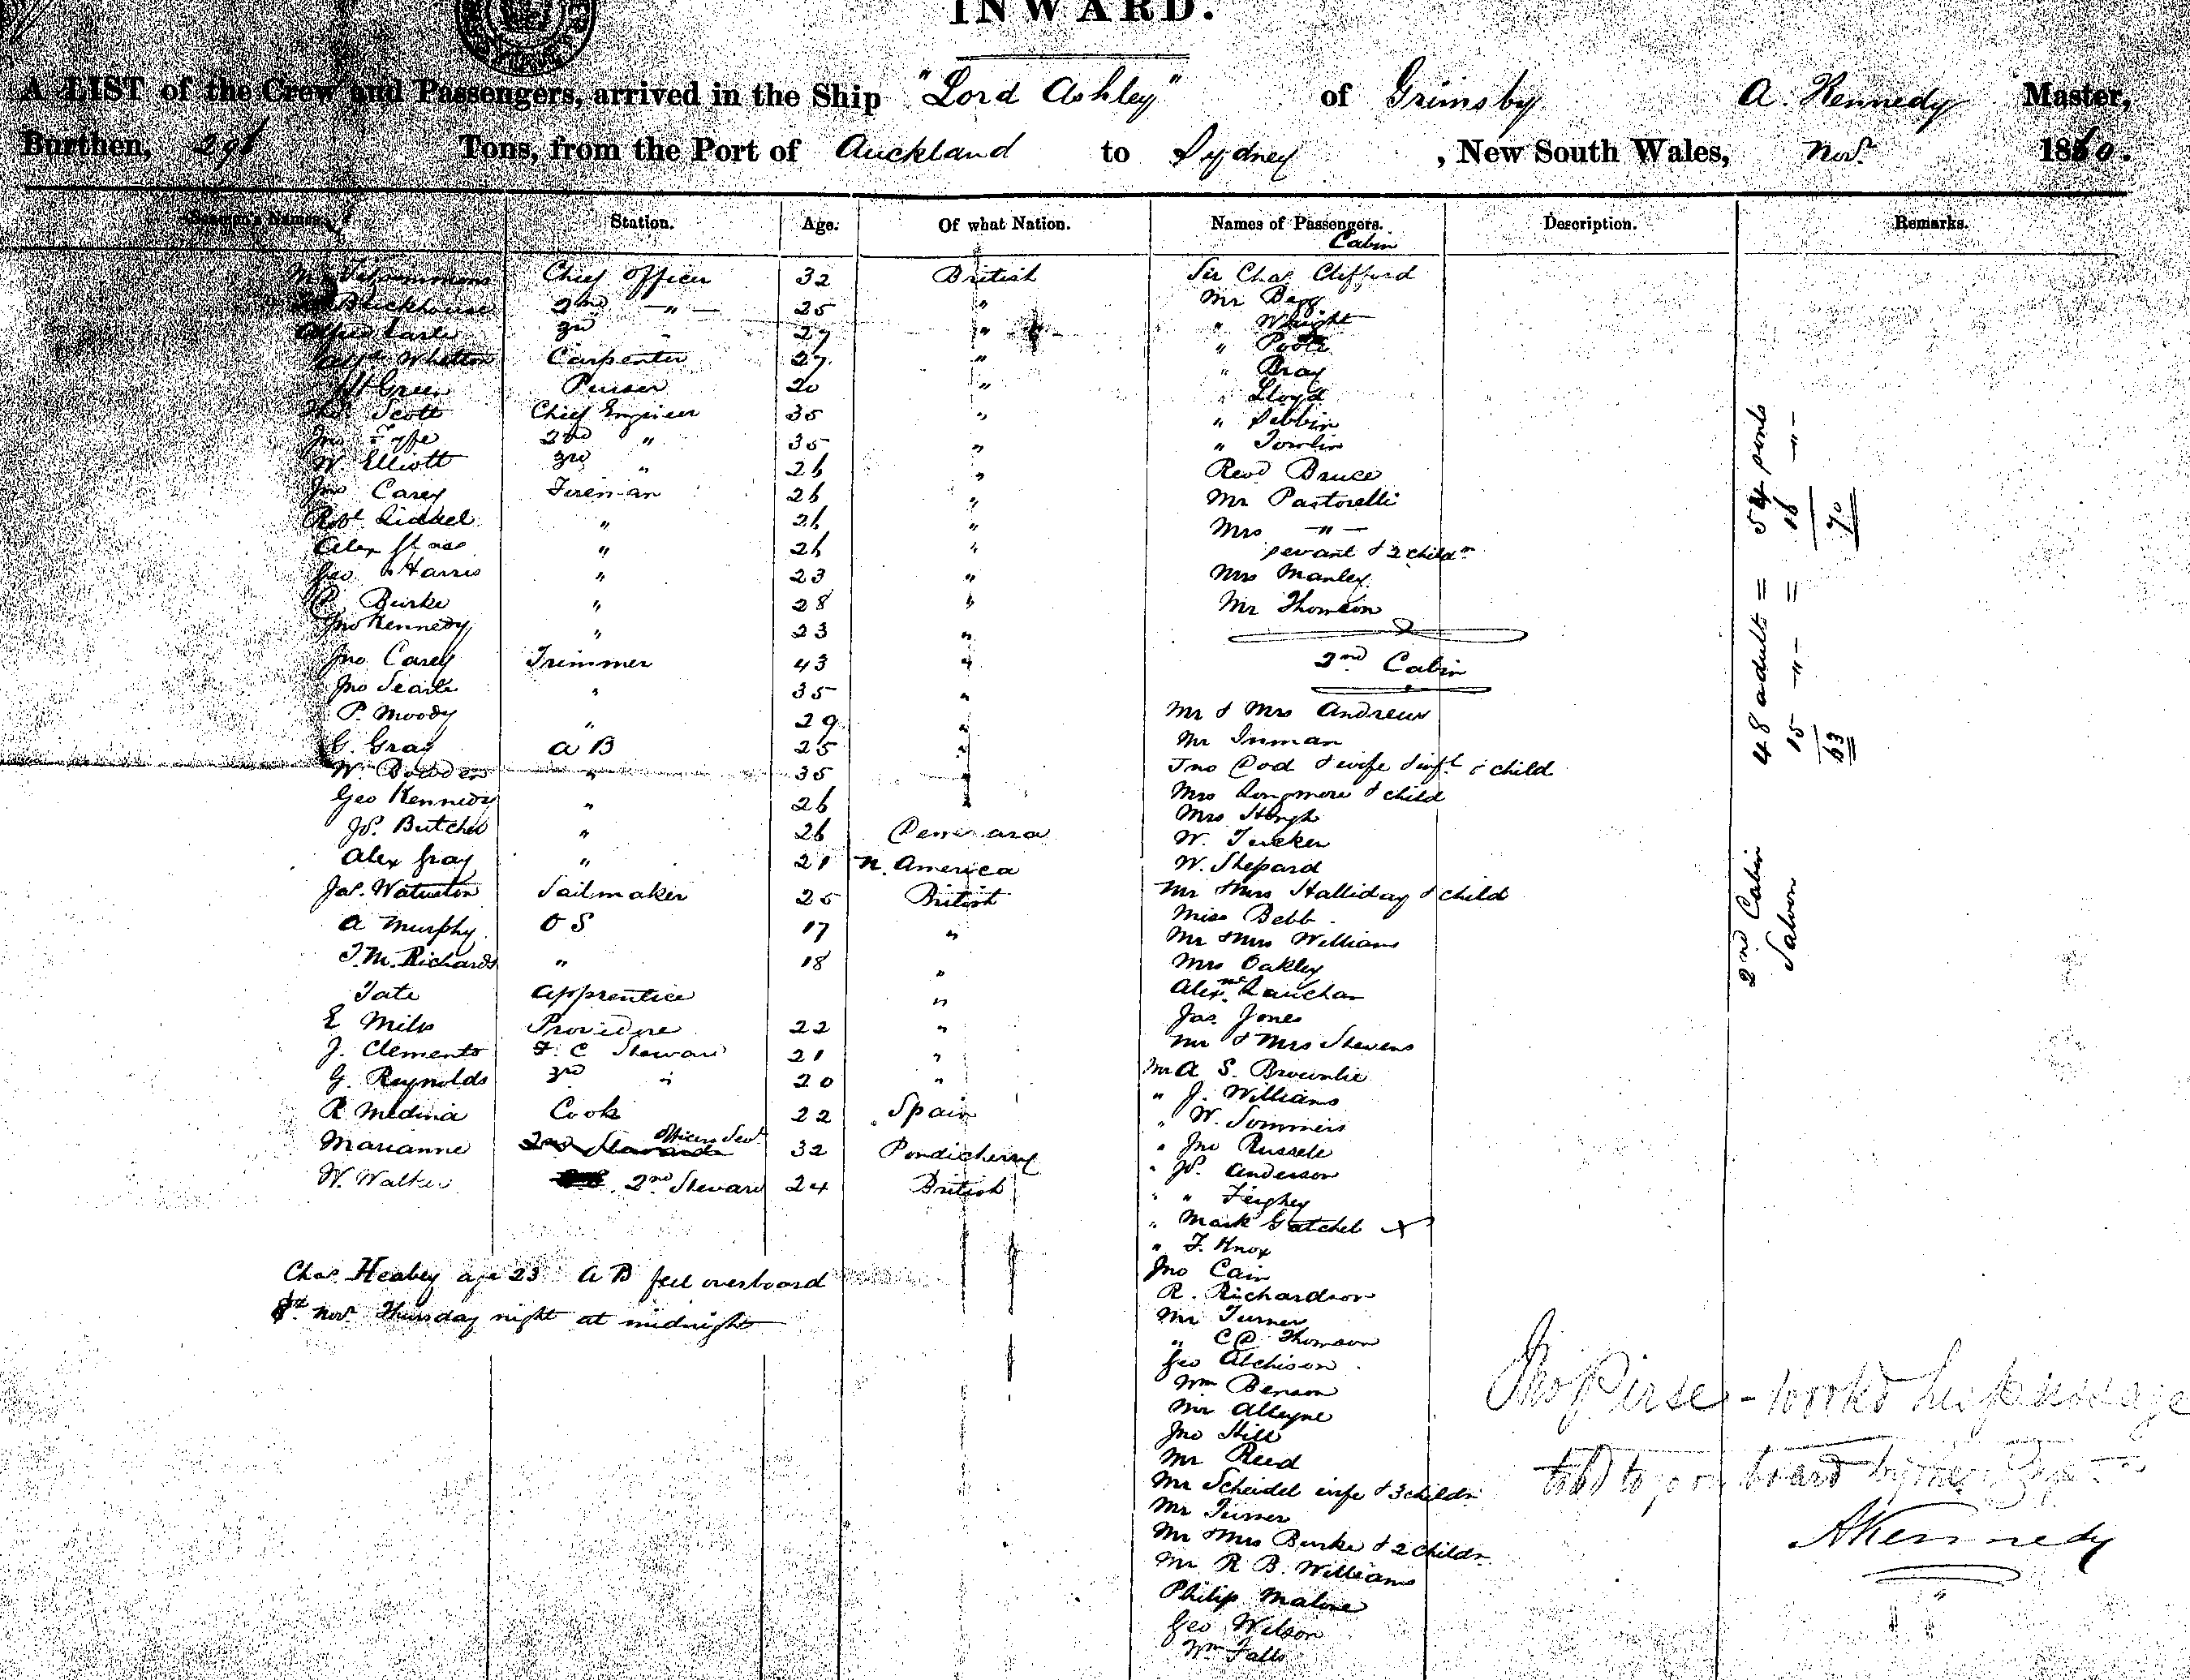 INWARD.
A LIST of the Crew and Passengers, arrived in the Ship "Lord Ashley" of Grimsby A. Kennedy Master,
Burthen, 296 Tons, from the Port of Auckland to Sydney, New South Wales, Novr 1860.
Seamen's Names. Station. Age. Of what Nation. Names of Passengers. Description. Remarks.
Cabin
Chief Officer 32 British Sir Chas Clifford
Backhouse 2nd " 25 " Mr Begg
Alfred Earle 3rd " 27 " " Wright
Whetton Carpenter 27 " " Poole
Green Purser 20 " " Bray
Thos Scott Chief Engineer 35 " " Lloyd
Jno Fyfe 2nd " 35 " " Sebbin
W. Elliott 3rd " 26 " " Tomlin
Jno Carey Fireman 26 " Revd Bruce
Robt Liddel " 26 " Mr Pastorelli
Alex " 26 " Mrs "
servant & 2 childn
Geo Harris " 23 " Mrs Manley
P. Burke " 28 " Mr Thomson
Jno Kennedy " 23 "
Jno Carey Trimmer 43 " 2nd Cabin
Jno Searle " 35 "
P. Moody " 29 " Mr & Mrs Andrews
G. Gray A B 25 " Mr Inman
W. Bowden " 35 " Jno Cod & wife & inft & child
Geo Kennedy " 26 " Mrs Longmore & child
Mrs Hough
Js. Butcher " 26 Demerara W. Tucker
Alex Gray " 21 N. America W. Shepard
Jas. Waterston Sailmaker 25 British Mr & Mrs Halliday & child
Miss Bebb
A Murphy O S 17 " Mr & Mrs Williams
T. M. Richards " 18 " Mrs Oakley
Tate Apprentice " Alex McLauchan
E Mills Providore 22 " Jas. Jones
J. Clements F. C Steward 21 " Mr & Mrs Stevens
G. Reynolds 3rd " 20 " Mr A S. Brownlie
R Medina Cook 22 Spain " J. Williams
" W. Sommers
Marianne Officers Servt 32 Pondicherry " Jno Russele
" Js. Anderson
W. Walker 2nd Steward 24 British " " Feighey
" Mark Gatchel X
" F. Knox
Chas. Healey age 23 A B fell overboard Jno Cain
8th Novr Thursday night at midnight R. Richardson
Mr Turner
" C D. Thomson
Geo Atchison
Wm Benson
Mr Alleyne
Jno Hill
Mr Reed
Mr Scheidel wife & 3 childn
Mr Turner
Mr & Mrs Burke & 2 childn
Mr R B. Williams
Philip Malone
Geo Wilson
Wm Falls
2nd Cabin 48 adults = 54 ports
Saloon 15 " = 16 "
63 70
Jno Pirse - workd his passage
told to go on board by me
A Kennedy